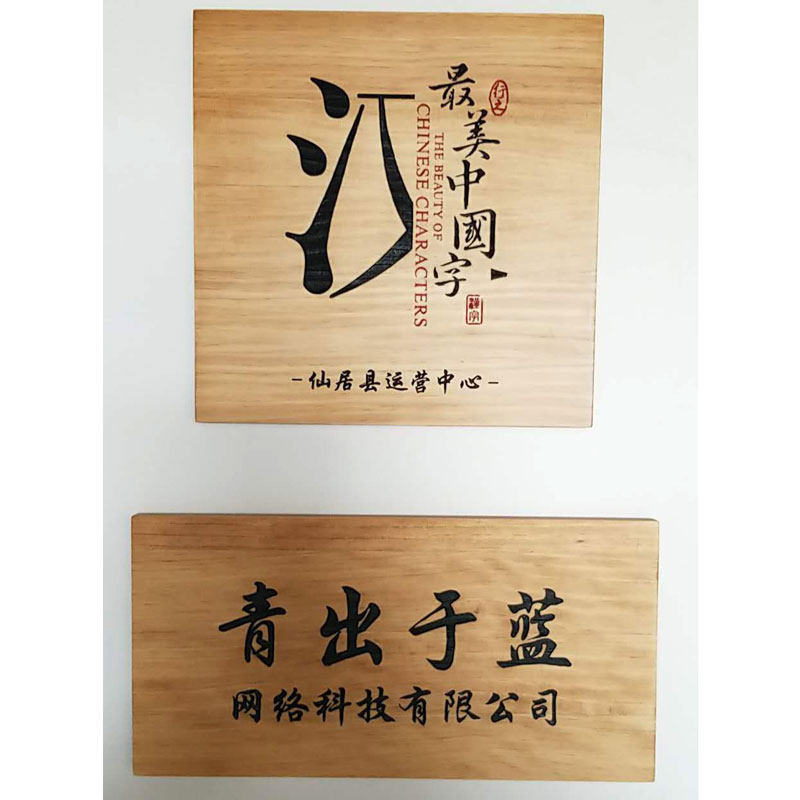 汉
最美中國字
THE BEAUTY OF
CHINESE CHARACTERS
行之
-仙居县运营中心-
青出于蓝
网络科技有限公司